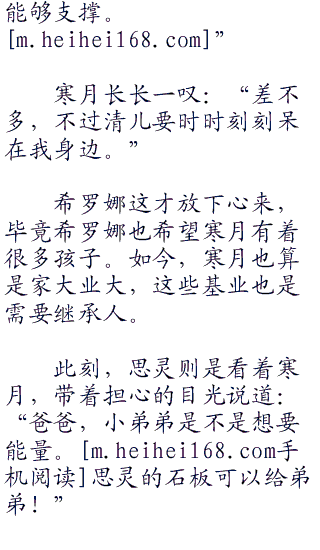 能够支撑。
[m.heihei168.com]”
寒月长长一叹：“差不
多，不过清儿要时时刻刻呆
在我身边。”
希罗娜这才放下心来，
毕竟希罗娜也希望寒月有着
很多孩子。如今，寒月也算
是家大业大，这些基业也是
需要继承人。
此刻，思灵则是看着寒
月，带着担心的目光说道：
“爸爸，小弟弟是不是想要
能量。[m.heihei168.com手
机阅读]思灵的石板可以给弟
弟！”